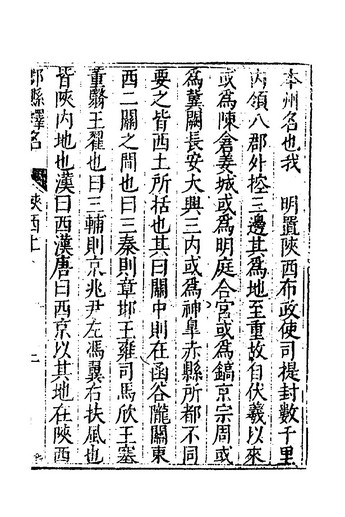 本州名也我　明置陝西布政使司提封數千里
內領八郡外控三邊其為地至重故自伏羲以來
或為陳倉姜城或為明庭合宮或為鎬京宗周或
為冀闕長安大興三內或為神皐赤縣所都不同
要之皆西土所括也其曰關中則在函谷隴關東
西二關之間也曰三秦則章邯王雍司馬欣王塞
董翳王翟也曰三輔則京兆尹左馮翊右扶風也
皆陝內地也漢曰西漢唐曰西京以其地在陝西
郡縣釋名
陝西上
二